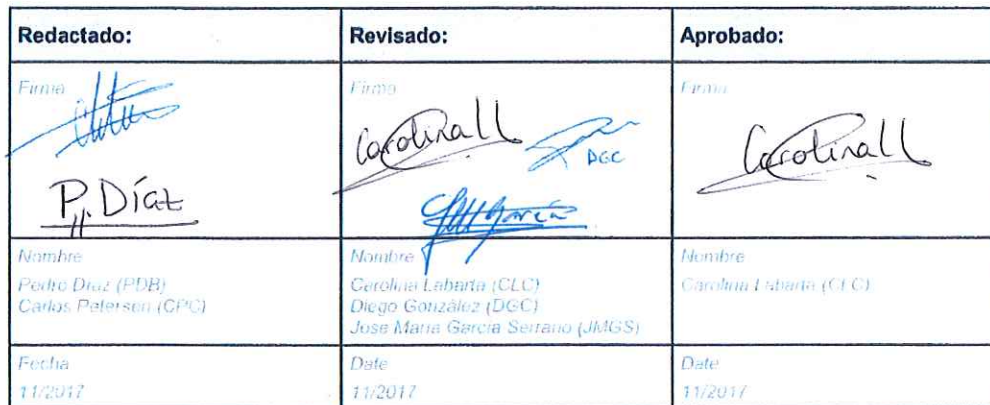 Redactado:
Revisado:
Aprobado:
Firma
Firma
Firma
P. Díaz
Carolina LL
DGC
JM García
Carolina LL
Nombre
Pedro Díaz (PDB)
Carlos Petersen (CPC)
Nombre
Carolina Labarta (CLC)
Diego González (DGC)
Jose María García Serrano (JMGS)
Nombre
Carolina Labarta (CLC)
Fecha
11/2017
Date
11/2017
Date
11/2017